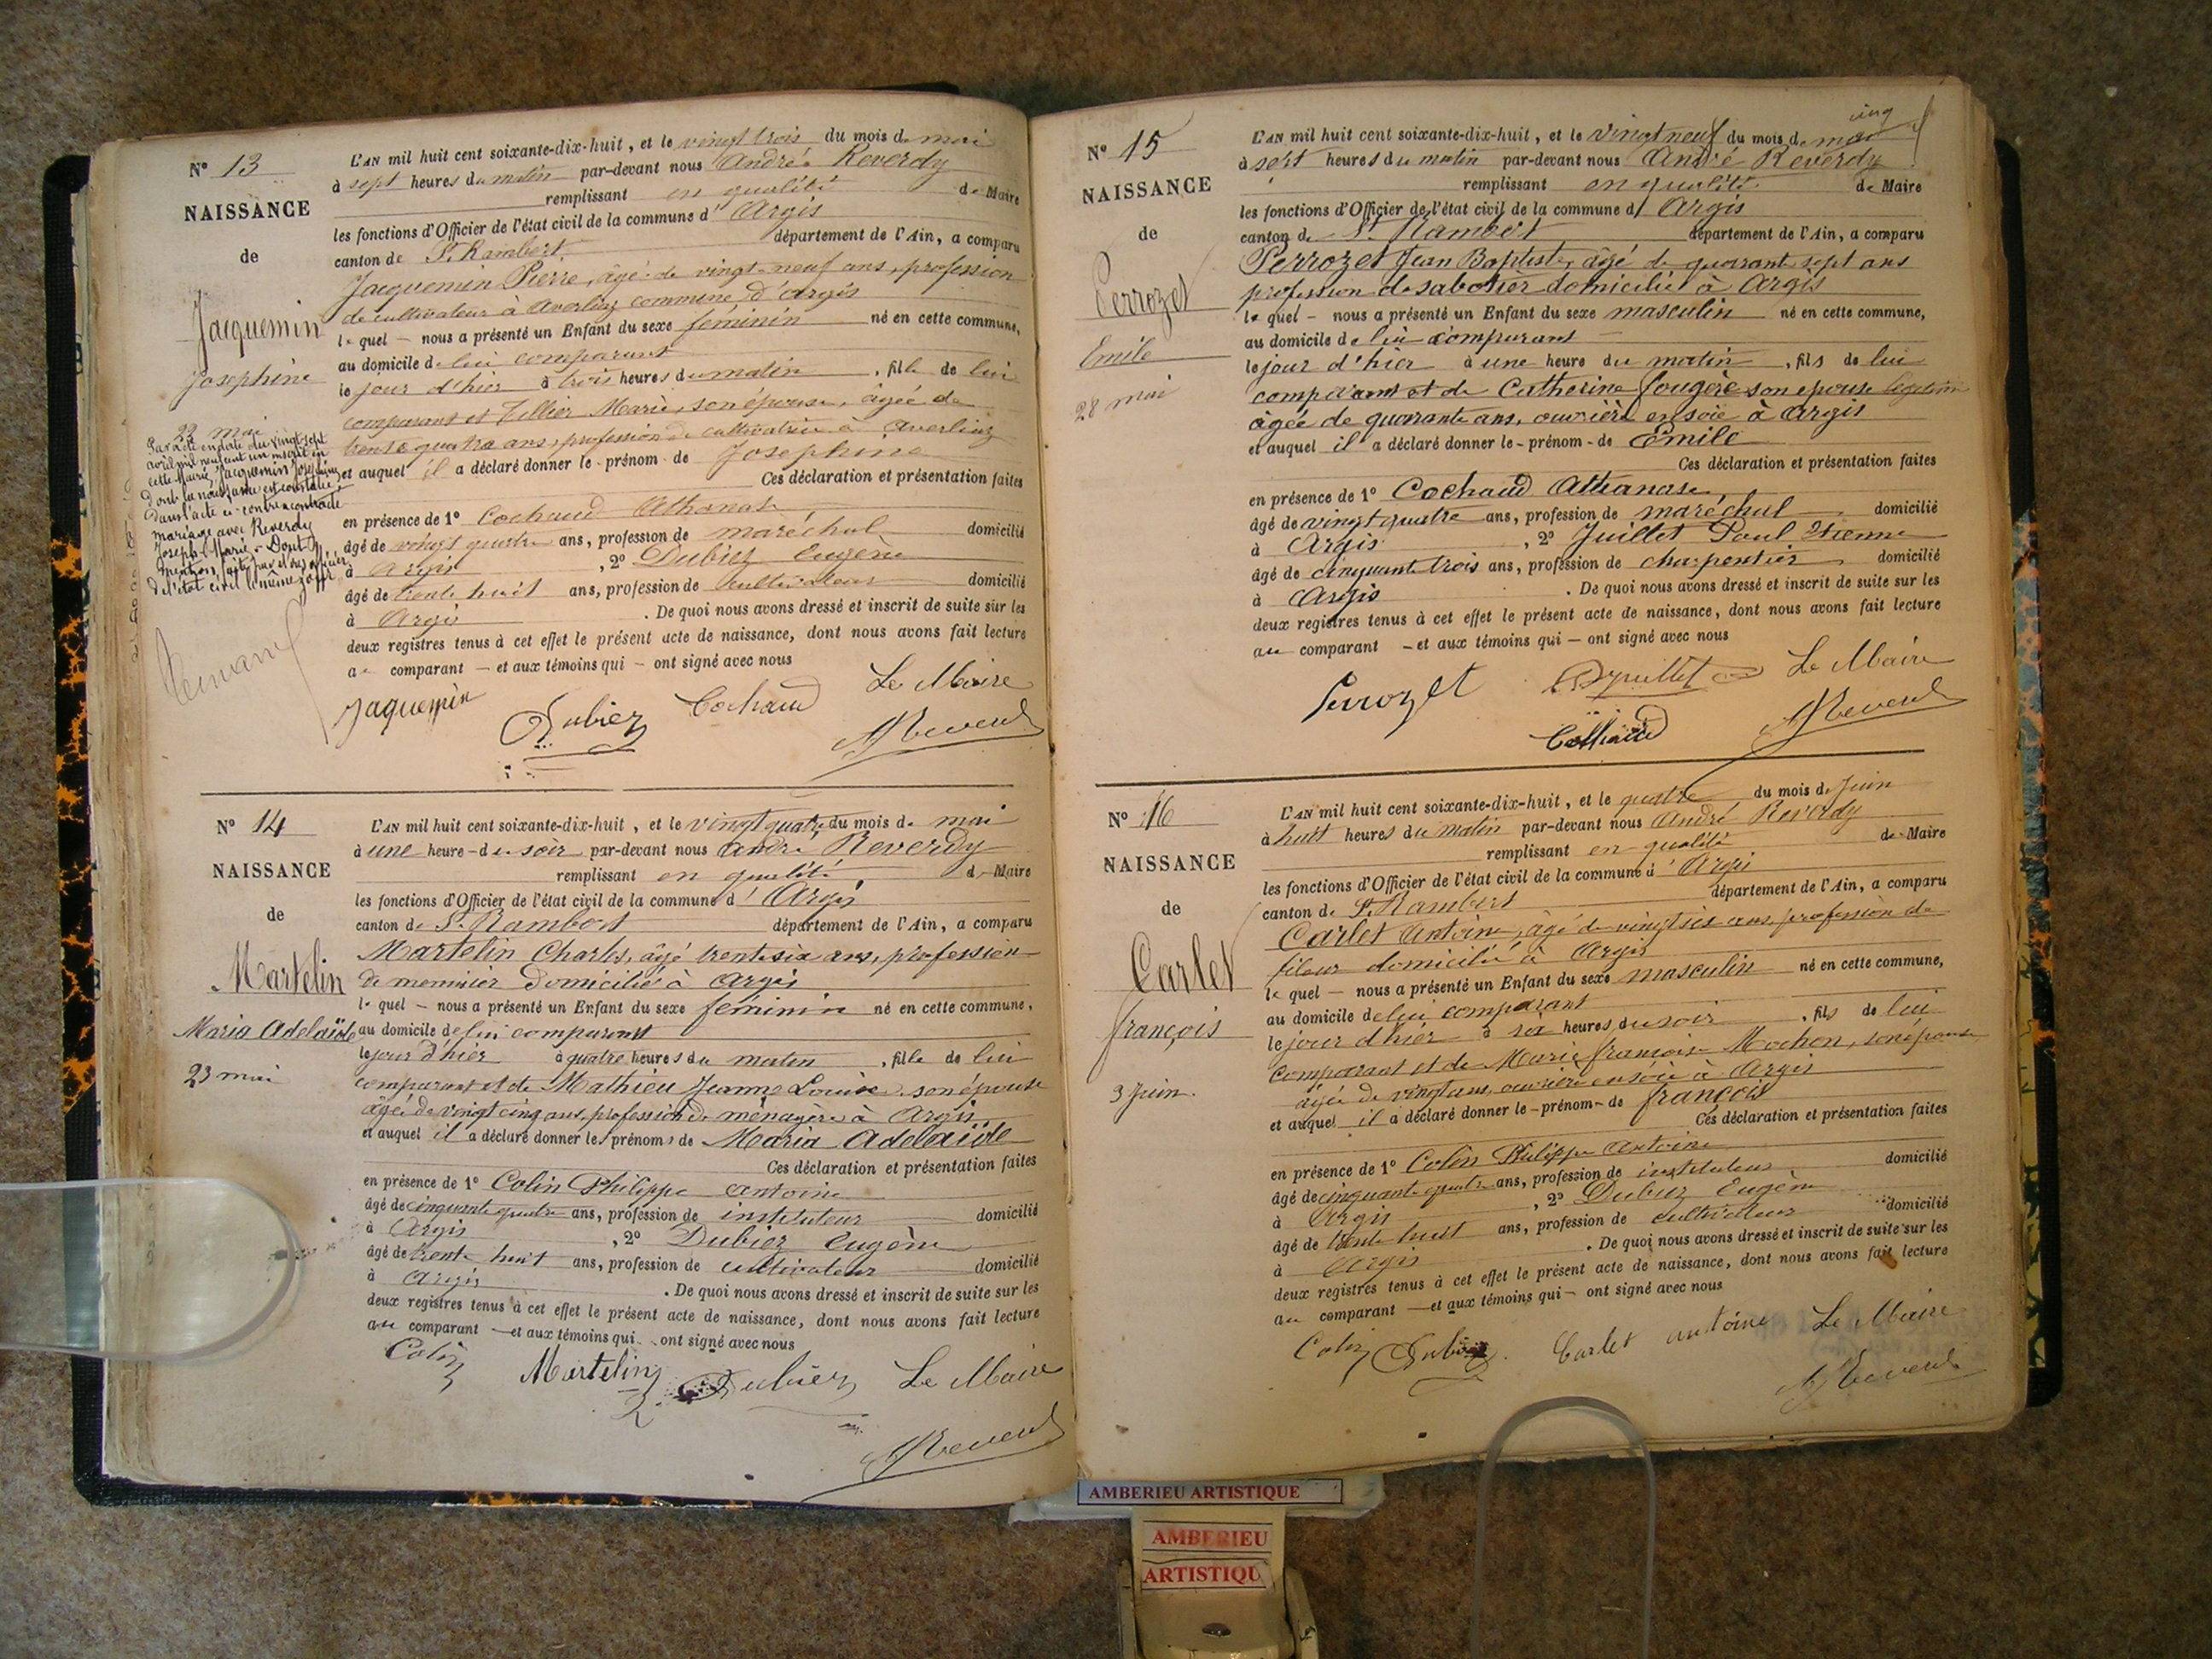 N° 13
NAISSANCE
de
Jacquemin
Josephine
22 mai
Par acte en date du vingt sept
avril mil neuf cent un inscrit en
cette Mairie, Jacquemin Josephine
dont la naissance est constatée
dans l'acte ci-contre a contracté
mariage avec Reverdy
Joseph Marie - Dont
mention faite par nous officier
de l'état civil le même jour
L'AN mil huit cent soixante-dix-huit, et le vingt trois du mois de mai
à sept heures du matin par-devant nous André Reverdy
remplissant en qualité de Maire
les fonctions d'Officier de l'état civil de la commune d'Argis
canton de St Rambert département de l'Ain, a comparu
Jacquemin Pierre, âgé de vingt-neuf ans, profession
de cultivateur à Averliaz commune d'argis
lequel – nous a présenté un Enfant du sexe féminin né en cette commune,
au domicile de lui comparant
le jour d'hier à trois heures du matin, fille de lui
comparant et Tellier Marie, son épouse, âgée de
trente quatre ans, profession de cultivatrice à Averliaz
et auquel il a déclaré donner le prénom de Josephine
Ces déclaration et présentation faites
en présence de 1° Cochaud Athanase
âgé de vingt quatre ans, profession de maréchal domicilié
à Argis, 2° Dubiez Eugène
âgé de trente huit ans, profession de cultivateur domicilié
à Argis. De quoi nous avons dressé et inscrit de suite sur les
deux registres tenus à cet effet le présent acte de naissance, dont nous avons fait lecture
au comparant – et aux témoins qui – ont signé avec nous
Le Maire
Jaquemin Dubiez Cochaud
A Reverdy
N° 14
NAISSANCE
de
Martelin
Maria Adelaïde
23 mai
L'AN mil huit cent soixante-dix-huit, et le vingt quatre du mois de mai
à une heure du soir par-devant nous André Reverdy
remplissant en qualité de Maire
les fonctions d'Officier de l'état civil de la commune d'Argis
canton de St Rambert département de l'Ain, a comparu
Martelin Charles, âgé trente six ans, profession
de menuisier domicilié à Argis
lequel – nous a présenté un Enfant du sexe féminin né en cette commune,
au domicile de lui comparant
le jour d'hier à quatre heures du matin, fille de lui
comparant et de Mathieu Jeanne Louise son épouse
âgé de vingt cinq ans, profession de ménagère à Argis
et auquel il a déclaré donner les prénoms de Maria Adelaïde
Ces déclaration et présentation faites
en présence de 1° Colin Philippe Antoine
âgé de cinquante quatre ans, profession de instituteur domicilié
à Argis, 2° Dubiez Eugène
âgé de trente huit ans, profession de cultivateur domicilié
à Argis. De quoi nous avons dressé et inscrit de suite sur les
deux registres tenus à cet effet le présent acte de naissance, dont nous avons fait lecture
au comparant – et aux témoins qui ont signé avec nous
Colin Martelin Dubiez Le Maire
A Reverdy
N° 15
NAISSANCE
de
Perrozet
Emile
28 mai
L'AN mil huit cent soixante-dix-huit, et le vingt neuf du mois de mai
à sept heures du matin par-devant nous André Reverdy
remplissant en qualité de Maire
les fonctions d'Officier de l'état civil de la commune d'Argis
canton de St Rambert département de l'Ain, a comparu
Perrozet Jean Baptiste, âgé de quarante sept ans
profession de sabotier domicilié à Argis
lequel – nous a présenté un Enfant du sexe masculin né en cette commune,
au domicile de lui comparant
le jour d'hier à une heure du matin, fils de lui
comparant et de Catherine Fougère son epouse légitime
âgée de quarante ans, ouvrière en soie à Argis
et auquel il a déclaré donner le – prénom – de Emile
Ces déclaration et présentation faites
en présence de 1° Cochaud Athanase
âgé de vingt quatre ans, profession de maréchal domicilié
à Argis, 2° Juillet Paul Etienne
âgé de cinquante trois ans, profession de charpentier domicilié
à Argis. De quoi nous avons dressé et inscrit de suite sur les
deux registres tenus à cet effet le présent acte de naissance, dont nous avons fait lecture
au comparant – et aux témoins qui – ont signé avec nous
Perrozet Juillet Le Maire
Cochaud A Reverdy
N° 16
NAISSANCE
de
Carlet
françois
3 juin
L'AN mil huit cent soixante-dix-huit, et le quatre du mois de Juin
à huit heures du matin par-devant nous André Reverdy
remplissant en qualité de Maire
les fonctions d'Officier de l'état civil de la commune d'Argis
canton de St Rambert département de l'Ain, a comparu
Carlet Antoine, âgé de vingt six ans, profession de
fileur domicilié à Argis
lequel – nous a présenté un Enfant du sexe masculin né en cette commune,
au domicile de lui comparant
le jour d'hier à six heures du soir, fils de lui
comparant et de Marie françoise Mochon, son épouse
âgée de vingt ans, ouvrière en soie à Argis
et auquel il a déclaré donner le – prénom – de françois
Ces déclaration et présentation faites
en présence de 1° Colin Philippe Antoine
âgé de cinquante quatre ans, profession de instituteur domicilié
à Argis, 2° Dubiez Eugène
âgé de trente huit ans, profession de cultivateur domicilié
à Argis. De quoi nous avons dressé et inscrit de suite sur les
deux registres tenus à cet effet le présent acte de naissance, dont nous avons fait lecture
au comparant – et aux témoins qui – ont signé avec nous
Colin Dubiez Carlet antoine Le Maire
A Reverdy
AMBERIEU ARTISTIQUE
AMBERIEU
ARTISTIQU